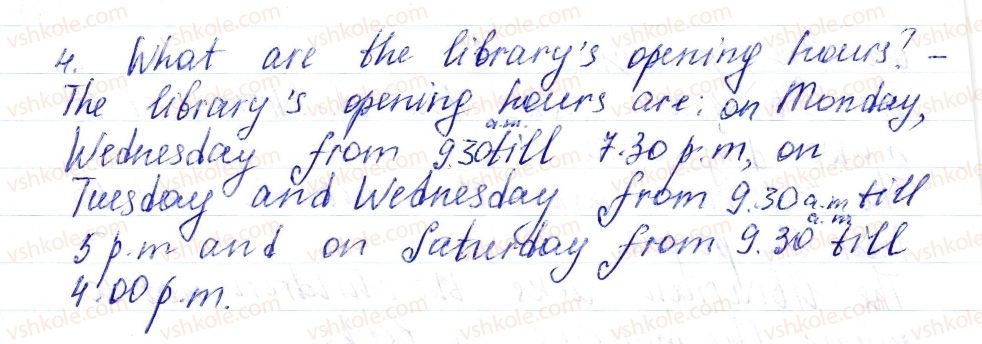 4. What are the library's opening hours? –
The library's opening hours are: on Monday,
Wednesday from 9.30 a.m. till 7.30 p.m, on
Tuesday and Wednesday from 9.30 a.m till
5 p.m and on Saturday from 9.30 a.m till
4.00 p.m.